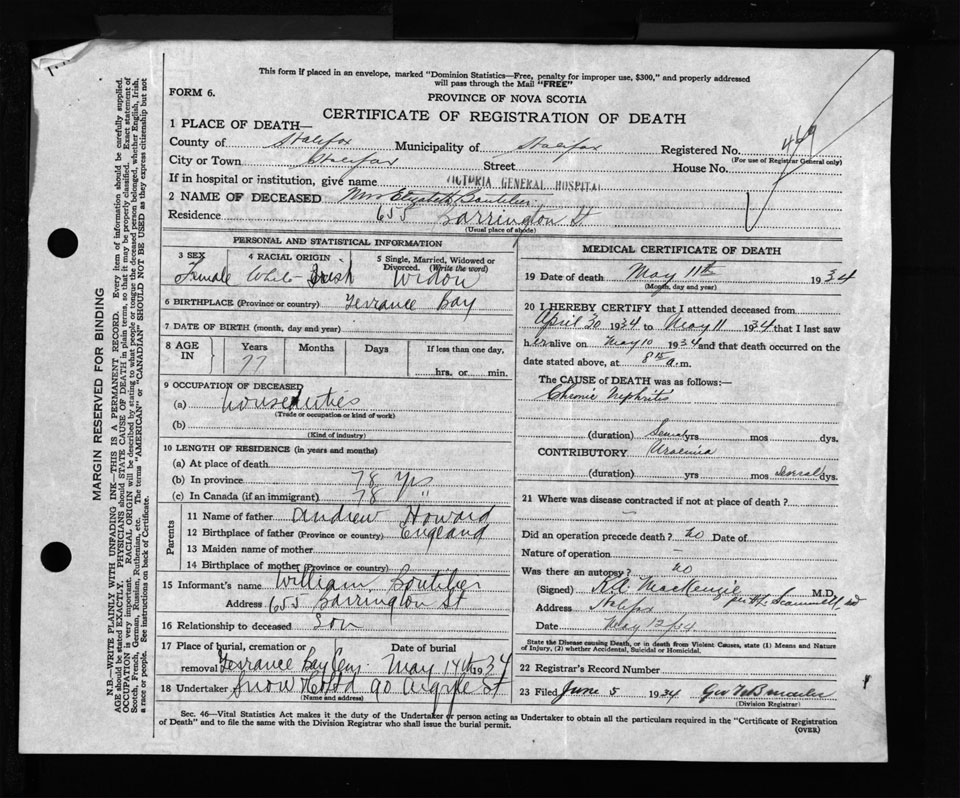 This form if placed in an envelope, marked "Dominion Statistics—Free, penalty for improper use, $300," and properly addressed
will pass through the Mail "FREE"
FORM 6.
PROVINCE OF NOVA SCOTIA
CERTIFICATE OF REGISTRATION OF DEATH
1 PLACE OF DEATH—
County of Halifax Municipality of Halifax Registered No. 469
(For use of Registrar General only)
City or Town Halifax Street House No.
If in hospital or institution, give name VICTORIA GENERAL HOSPITAL
2 NAME OF DECEASED Mrs Elizabeth Boutilier
Residence 655 Barrington St
(Usual place of abode)
PERSONAL AND STATISTICAL INFORMATION
3 SEX 4 RACIAL ORIGIN 5 Single, Married, Widowed or
Divorced. (Write the word)
Female White Irish Widow
6 BIRTHPLACE (Province or country) Terrance Bay
7 DATE OF BIRTH (month, day and year)
8 AGE IN Years Months Days If less than one day,
77
hrs. or min.
9 OCCUPATION OF DECEASED
(a) Houseduties
(Trade or occupation or kind of work)
(b)
(Kind of industry)
10 LENGTH OF RESIDENCE (in years and months)
(a) At place of death
(b) In province 78 Yrs
(c) In Canada (if an immigrant) 78 "
Parents
11 Name of father Andrew Howard
12 Birthplace of father (Province or country) England
13 Maiden name of mother
14 Birthplace of mother (Province or country)
15 Informant's name William Boutilier
Address 655 Barrington St
16 Relationship to deceased Son
17 Place of burial, cremation or Date of burial
removal Terrance Bay Cem. May 14th 1934
18 Undertaker Snow & Co Ltd 90 Argyle St
(Name and address)
MEDICAL CERTIFICATE OF DEATH
19 Date of death May 11th 1934
(Month, day and year)
20 I HEREBY CERTIFY that I attended deceased from
April 30 1934 to May 11 1934 that I last saw
her alive on May 10 1934 and that death occurred on the
date stated above, at 8 a.m.
The CAUSE of DEATH was as follows:—
Chronic Nephritis
(duration) Several yrs mos dys.
CONTRIBUTORY Uraemia
(duration) yrs mos Several dys.
21 Where was disease contracted if not at place of death?
—
Did an operation precede death? no Date of
Nature of operation —
Was there an autopsy? no
(Signed) K.A. MacKenzie M.D.
per
Address Halifax
Date May 12/34
State the Disease causing Death, or in death from Violent Causes, state (1) Means and Nature
of Injury, (2) whether Accidental, Suicidal or Homicidal.
22 Registrar's Record Number
23 Filed June 5 1934
(Division Registrar)
Sec. 46—Vital Statistics Act makes it the duty of the Undertaker or person acting as Undertaker to obtain all the particulars required in the "Certificate of Registration
of Death" and to file the same with the Division Registrar who shall issue the burial permit.
(OVER)
MARGIN RESERVED FOR BINDING
N.B.—WRITE PLAINLY WITH UNFADING INK—THIS IS A PERMANENT RECORD. Every item of information should be carefully supplied.
AGE should be stated EXACTLY. PHYSICIANS should STATE CAUSE OF DEATH in plain terms, so that it may be properly classified. Exact statement of
OCCUPATION is very important. RACIAL ORIGIN will be described by stating to what people or tongue the deceased person belonged, whether English, Irish,
Scotch, French, German, Russian, Ruthenian, etc. The terms "AMERICAN" or "CANADIAN" SHOULD NOT BE USED as they express citizenship but not
a race or people. See instructions on back of Certificate.